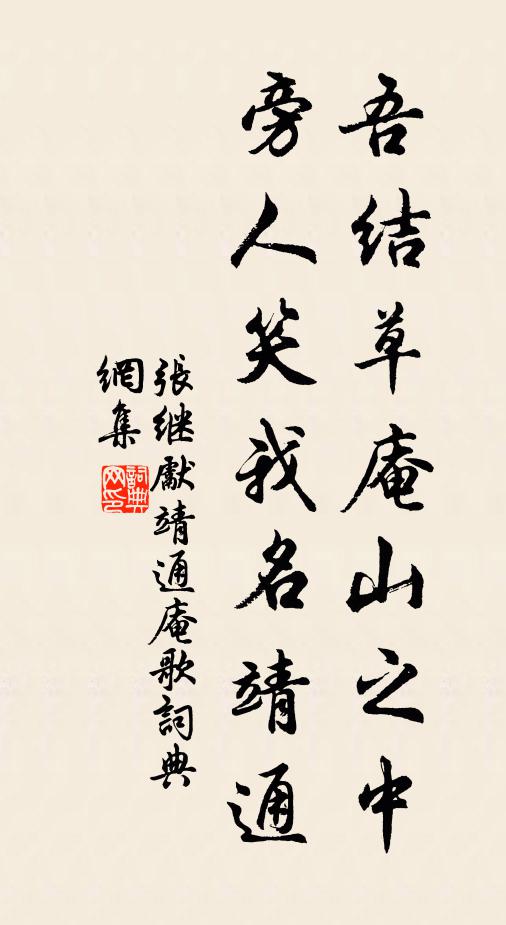 吾结草庵山之中
旁人笑我名靖通
張继獻靖通庵歌詞典
網集
詞典
网印